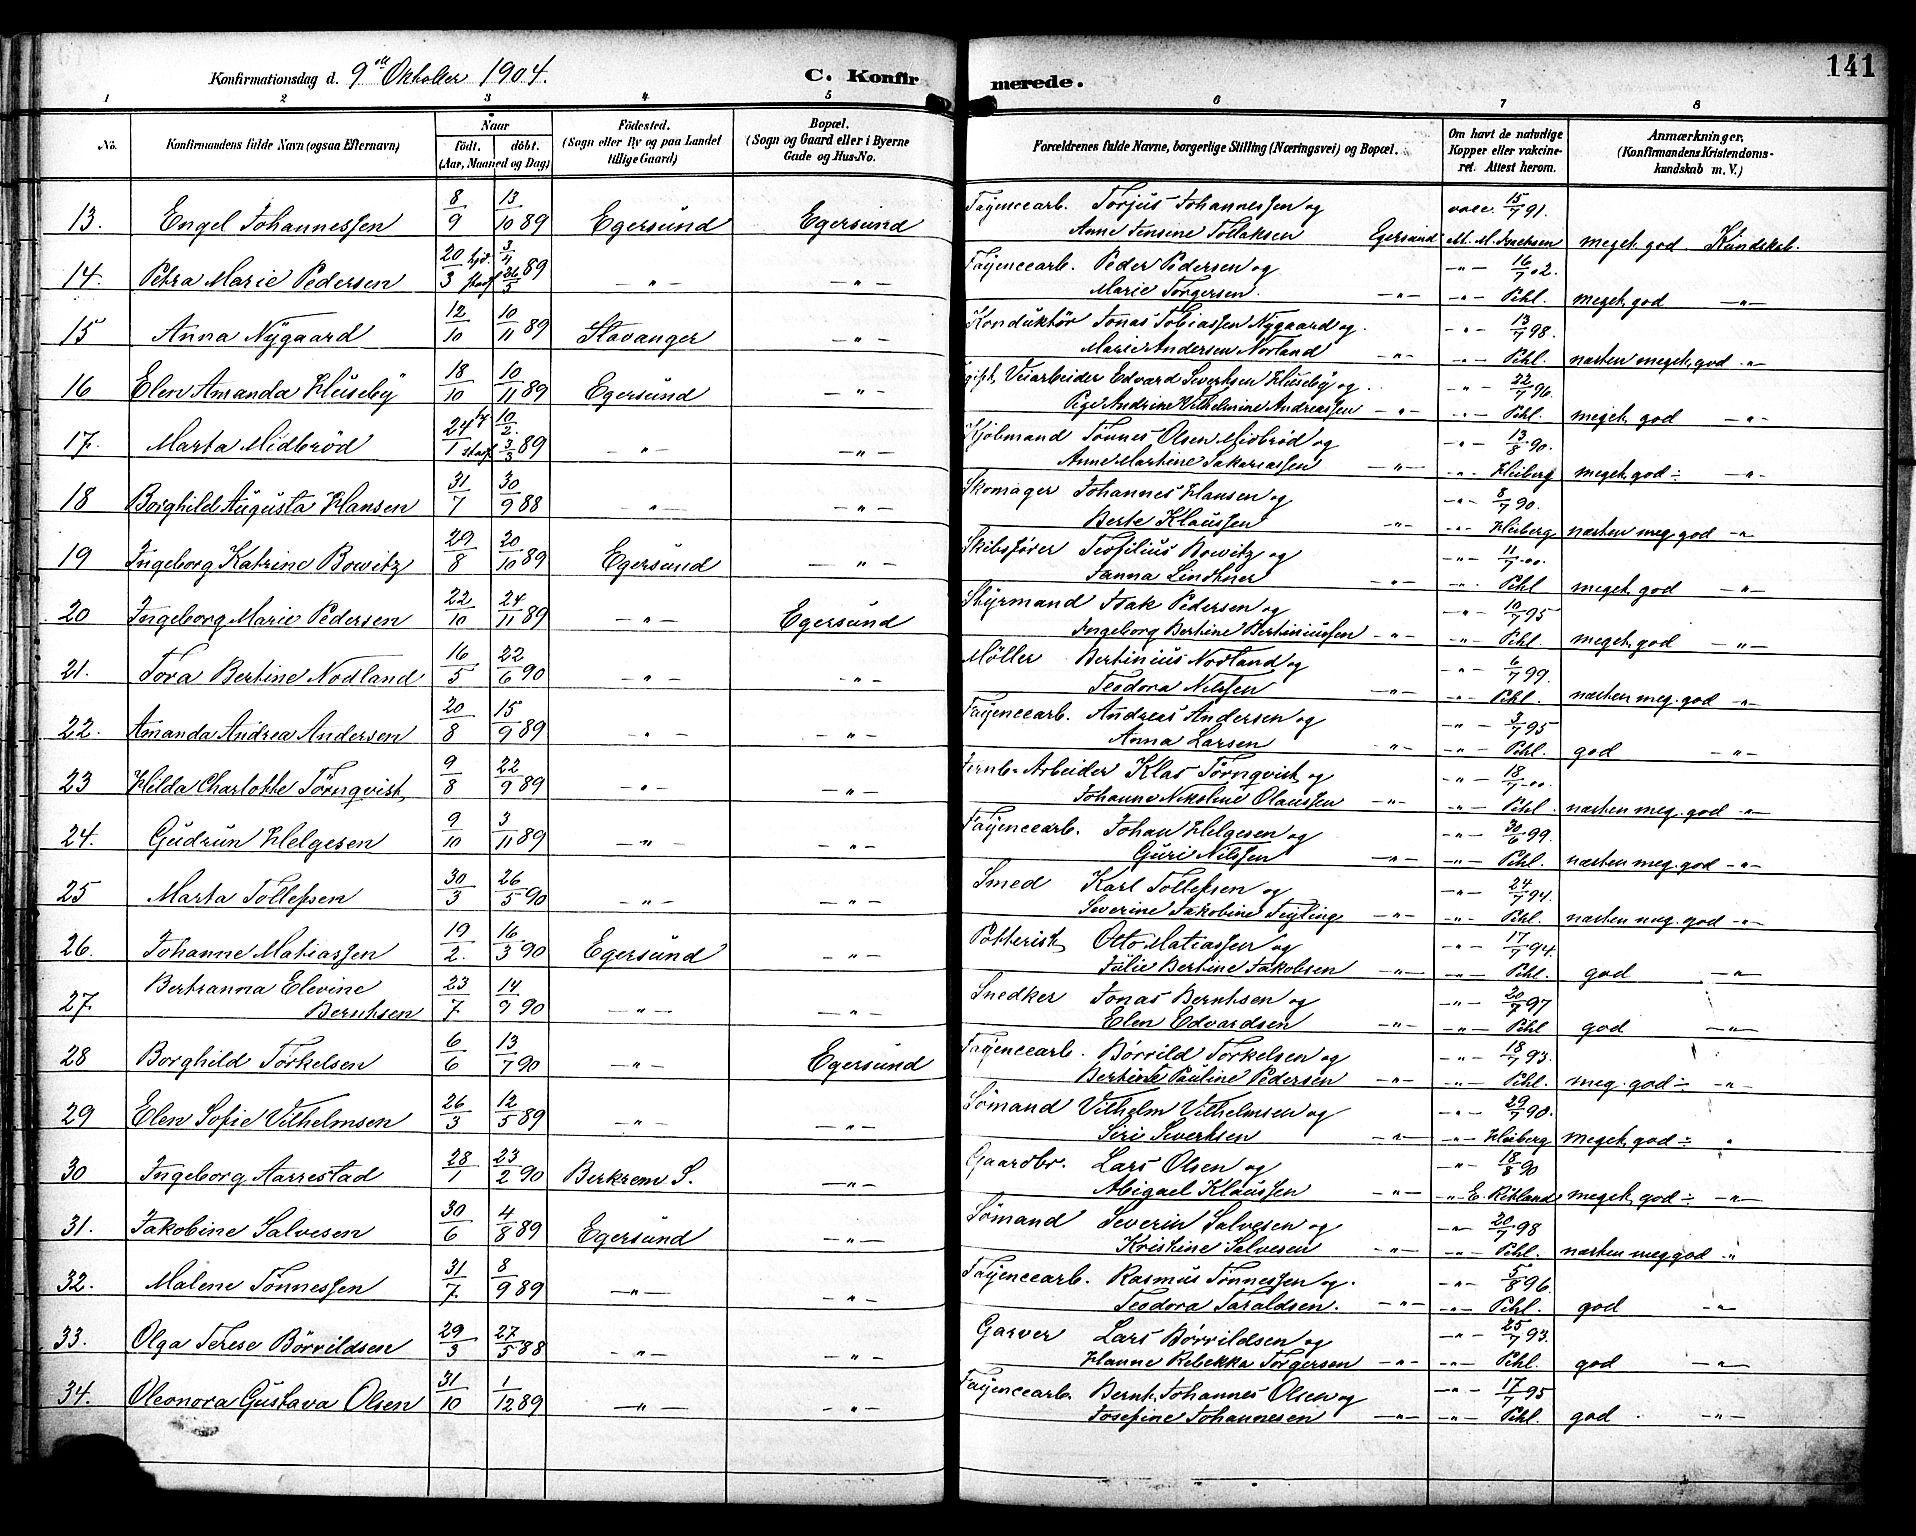 141
Konfirmationsdag d. 9de Oktober 1904.
C. Konfirmerede.
1 2 3 4 5 6 7 8
No. Konfirmandens fulde Navn (ogsaa Efternavn) Naar födt. döbt. (Aar, Maaned og Dag) Födested. (Sogn eller By og paa Landet tillige Gaard) Bopæl. (Sogn og Gaard eller i Byerne Gade og Hus-No.) Forældrenes fulde Navne, borgerlige Stilling (Næringsvei) og Bopæl. Om havt de naturlige Kopper eller vakcineret. Attest herom. Anmærkninger, (Konfirmandens Kristendomskundskab m. V.)
13. Engel Johannessen 8/9 13/10 89 Egersund Egersund Fayencearb. Torjus Johannessen og vacc. 15/7 91.
Anne Jensine Tollaksen Egersund M. M. meget god Kundskab.
14. Petra Marie Pedersen 20/3 hjd. 3/4 staf 26/5 89 —„— —„— Fayencearb. Peder Pedersen og —„— 16/7 02.
Marie Torgersen. —„— —„— Pihl. meget god —„—
15 Anna Nygaard 12/10 10/11 89 Stavanger —„— Konduktör Jonas Tobiassen Nygaard og —„— 13/7 98.
Marie Andersen Norland —„— —„— Pihl. næsten meget god —„—
16 Elen Amanda Huseby 18/10 10/11 89 Egersund —„— gift Veiarbeider Edvard Severtsen Huseby og —„— 22/7 96.
Pige Andrine Vilhelmine Andreassen —„— —„— Pihl. meget god —„—
17. Marta Midbröd 24/1 10/2 staf 3/3 89 —„— —„— Kjöbmand Tönnes Olsen Midbröd og —„— 13/8 90.
Anne Martine Sakariassen —„— —„— Heiberg meget god ÷ —„—
18 Borghild Augusta Hansen 31/7 30/9 88 —„— —„— Skomager Johannes Hansen og —„— 8/7 90.
Berte Klaussen —„— —„— Heiberg næsten meg. god —„—
19 Ingeborg Katrine Bowitz 29/8 20/10 89 Egersund —„— Skibsförer Teofilius Bowitz og —„— 11/7 00.
Janna Lindtner —„— —„— Pihl meget god —„—
20 Ingeborg Marie Pedersen 22/10 24/11 89 —„— Egersund Styrmand Isak Pedersen og —„— 10/7 95
Ingeborg Bertine Bertiniussen —„— —„— Pihl. meget god —„—
21. Tora Bertine Nodland 16/5 22/6 90 —„— —„— Möller Bertinius Nodland og —„— 6/7 99.
Teodora Nilssen —„— —„— Pihl. næsten meg. god —„—
22. Amanda Andrea Andersen 20/8 15/9 89 —„— —„— Fayencearb. Andreas Andersen og —„— 3/7 95
Anna Larsen —„— —„— Pihl. god —„—
23 Hilda Charlotte Törnqvist 9/8 22/9 89 —„— —„— Jernb-Arbeider Klas Törnqvist og —„— 18/7 00.
Johanne Nikoline Olaussen —„— —„— Pihl. næsten meg. god —„—
24. Gudrun Helgesen 9/10 3/11 89 —„— —„— Fayencearb. Johan Helgesen og —„— 30/6 99.
Guri Nilssen —„— —„— Pihl. næsten meg. god —„—
25 Marta Tollefsen 30/3 26/5 90 —„— —„— Smed Karl Tollefsen og —„— 24/7 94.
Severine Jakobine —„— —„— Pihl. næsten meg. god —„—
26. Johanne Matiassen 19/2. 16/3 90 Egersund —„— Potterist Otto Matiassen og —„— 17/7 94.
Julie Bertine Jakobsen —„— —„— Pihl. god —„—
27. Bertranna Elevine 23/7 14/9 90 —„— —„— Snedker Jonas Berntsen og —„— 20/7 97
Berntsen Elen Edvardsen —„— —„— Pihl god —„—
28 Borghild Torkelsen 6/6 13/7 90 —„— Egersund Fayencearb. Börrild Torkelsen og —„— 18/7 93.
Bertine Pauline Pedersen —„— —„— Pihl. meg. god ÷ —„—
29 Elen Sofie Vilhelmsen 26/3 12/5 89 —„— —„— Sömand Vilhelm Vilhelmsen og —„— 29/7 90.
Siri Severtsen —„— —„— Heiberg meget god ÷ „
30 Ingeborg Aarrestad 28/1 23/2 90 Berkrem S. —„— Gaardbr. Lars Olsen og —„— 18/8 90
Abigael Klaussen —„— —„— E. Rötland meget god ÷ —„—
31. Jakobine Salvesen 30/6 4/8 89 Egersund —„— Sömand Severin Salvesen og —„— 20/7 98
Kristine Salvesen —„— —„— Pihl. næsten meg god —„
32. Malene Tönnessen 31/7. 8/9 89 —„— —„— Fayencearb. Rasmus Tönnessen og. —„— 5/8 96.
Teodora Taraldsen. —„— —„— Pihl. god —„—
33. Olga Terese Börrildsen 29/3 27/5 88 —„— —„— Garver Lars Börrildsen og —„— 25/7 93.
Hanne Rebekka Torgersen —„— —„— Pihl. god —„—
34. Oleonora Gustava Olsen 31/10 1/12 89 —„— —„— Fayencearb. Bernt Johannes Olsen og —„— 17/7 95
Josefine Johannesen —„— —„— Pihl. god —„—